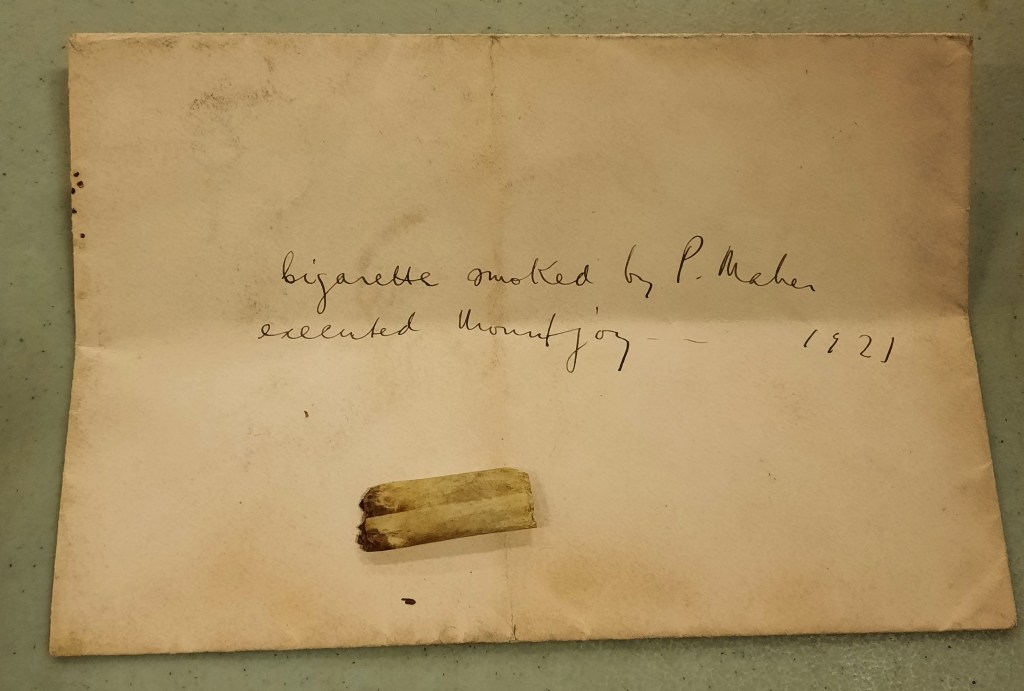 Cigarette smoked by P. Maher
executed Mountjoy - - 1921